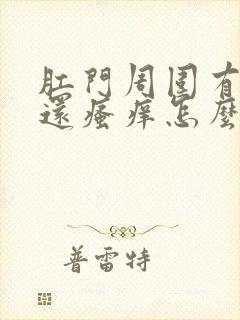 肛門周围有
還瘙痒怎麼
普雷特